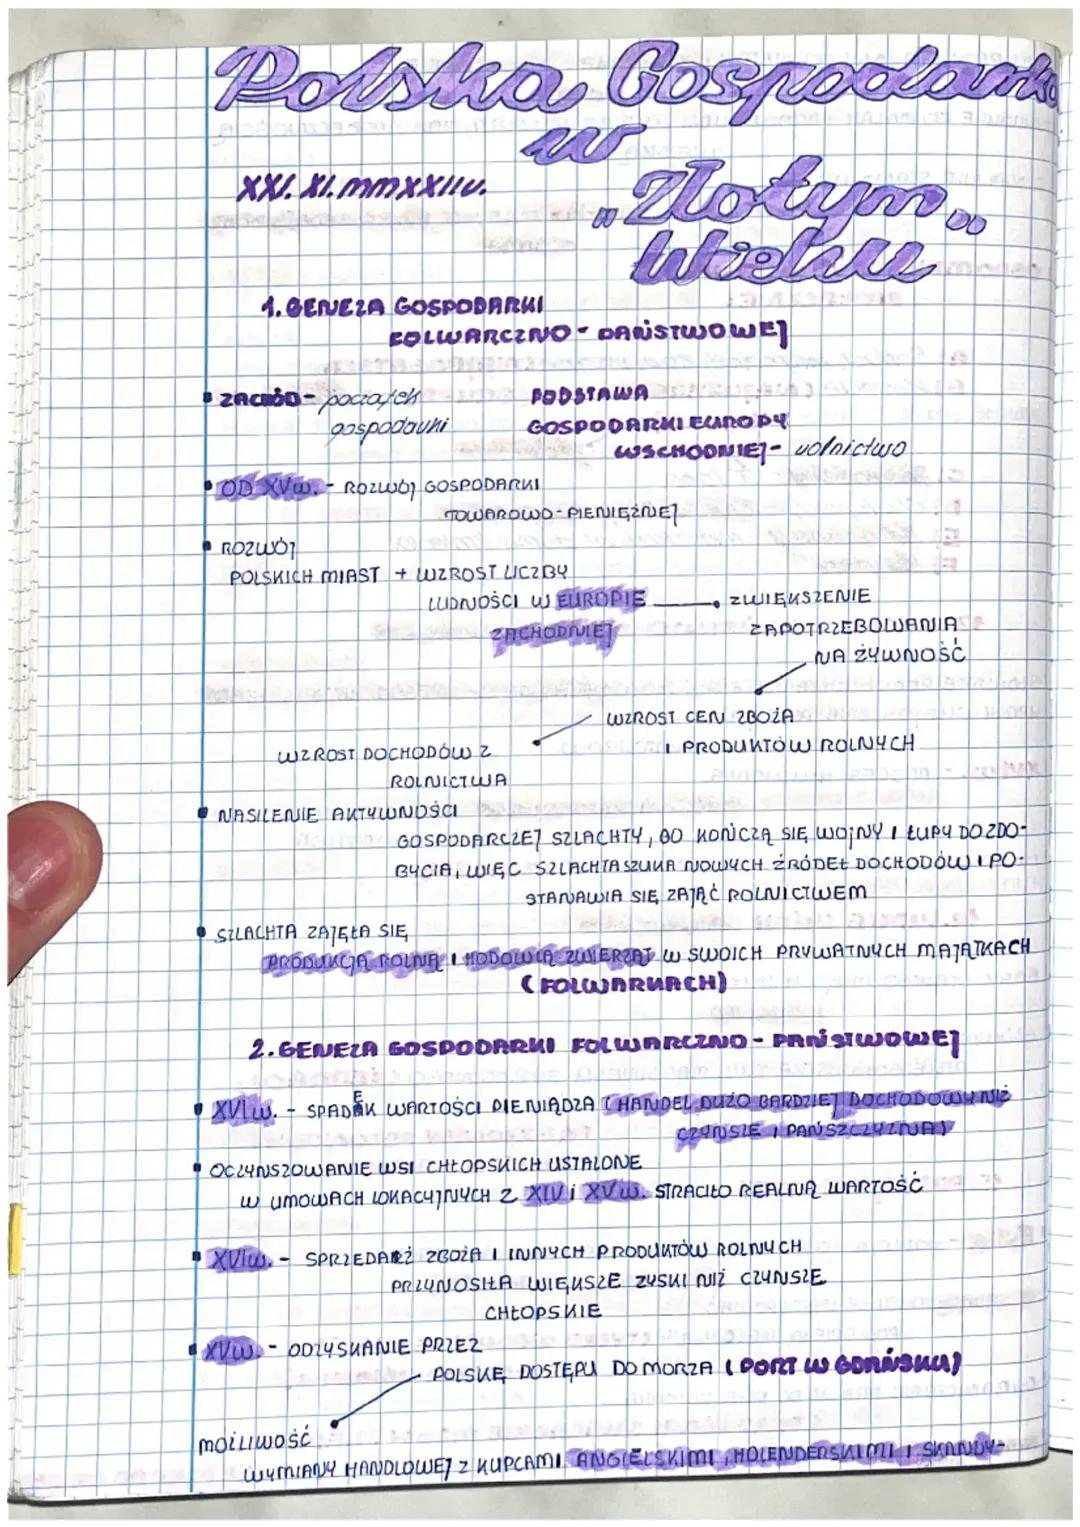 Polska Gospodarka
w
XXI. XI. mmXXIIv.
„Złotym„
Wieku
1. GENEZA GOSPODARKI
FOLWARCZNO - PAŃSTWOWEJ
ZACHÓD - początek
gospodarki
PODSTAWA
GOSPODARKI EUROPY
WSCHODNIEJ - rolnictwo
OD XVw. - ROZWÓJ GOSPODARKI
TOWAROWO - PIENIĘŻNEJ
ROZWÓJ
POLSKICH MIAST + WZROST LICZBY
LUDNOŚCI W EUROPIE
ZACHODNIEJ
ZWIĘKSZENIE
ZAPOTRZEBOWANIA
NA ŻYWNOŚĆ
WZROST CEN ZBOŻA
I PRODUKTÓW ROLNYCH
WZROST DOCHODÓW Z
ROLNICTWA
NASILENIE AKTYWNOŚCI
GOSPODARCZEJ SZLACHTY, BO KOŃCZĄ SIĘ WOJNY I ŁUPY DO ZDO-
BYCIA, WIĘC SZLACHTA SZUKA NOWYCH ŹRÓDEŁ DOCHODÓW I PO-
STANAWIA SIĘ ZAJĄĆ ROLNICTWEM
SZLACHTA ZAJĘŁA SIĘ
PRODUKCJĄ ROLNĄ I HODOWLĄ ZWIERZĄT W SWOICH PRYWATNYCH MAJĄTKACH
(FOLWARKACH)
2. GENEZA GOSPODARKI FOLWARCZNO - PAŃSTWOWEJ
XVI w. - SPADEK WARTOŚCI PIENIĄDZA (HANDEL DUŻO BARDZIEJ DOCHODOWY NIŻ
CZYNSZE I PAŃSZCZYZNA)
OCZYNSZOWANIE WSI CHŁOPSKICH USTALONE
W UMOWACH LOKACYJNYCH Z XIV i XV w. STRACIŁO REALNĄ WARTOŚĆ
XVI w. - SPRZEDAŻ ZBOŻA I INNYCH PRODUKTÓW ROLNYCH
PRZYNOSIŁA WIĘKSZE ZYSKI NIŻ CZYNSZE
CHŁOPSKIE
XV w. - ODZYSKANIE PRZEZ
POLSKĘ DOSTĘPU DO MORZA (PORT W GDAŃSKU)
MOŻLIWOŚĆ
WYMIANY HANDLOWEJ Z KUPCAMI ANGIELSKIMI, HOLENDERSKIMI I SKANDY-